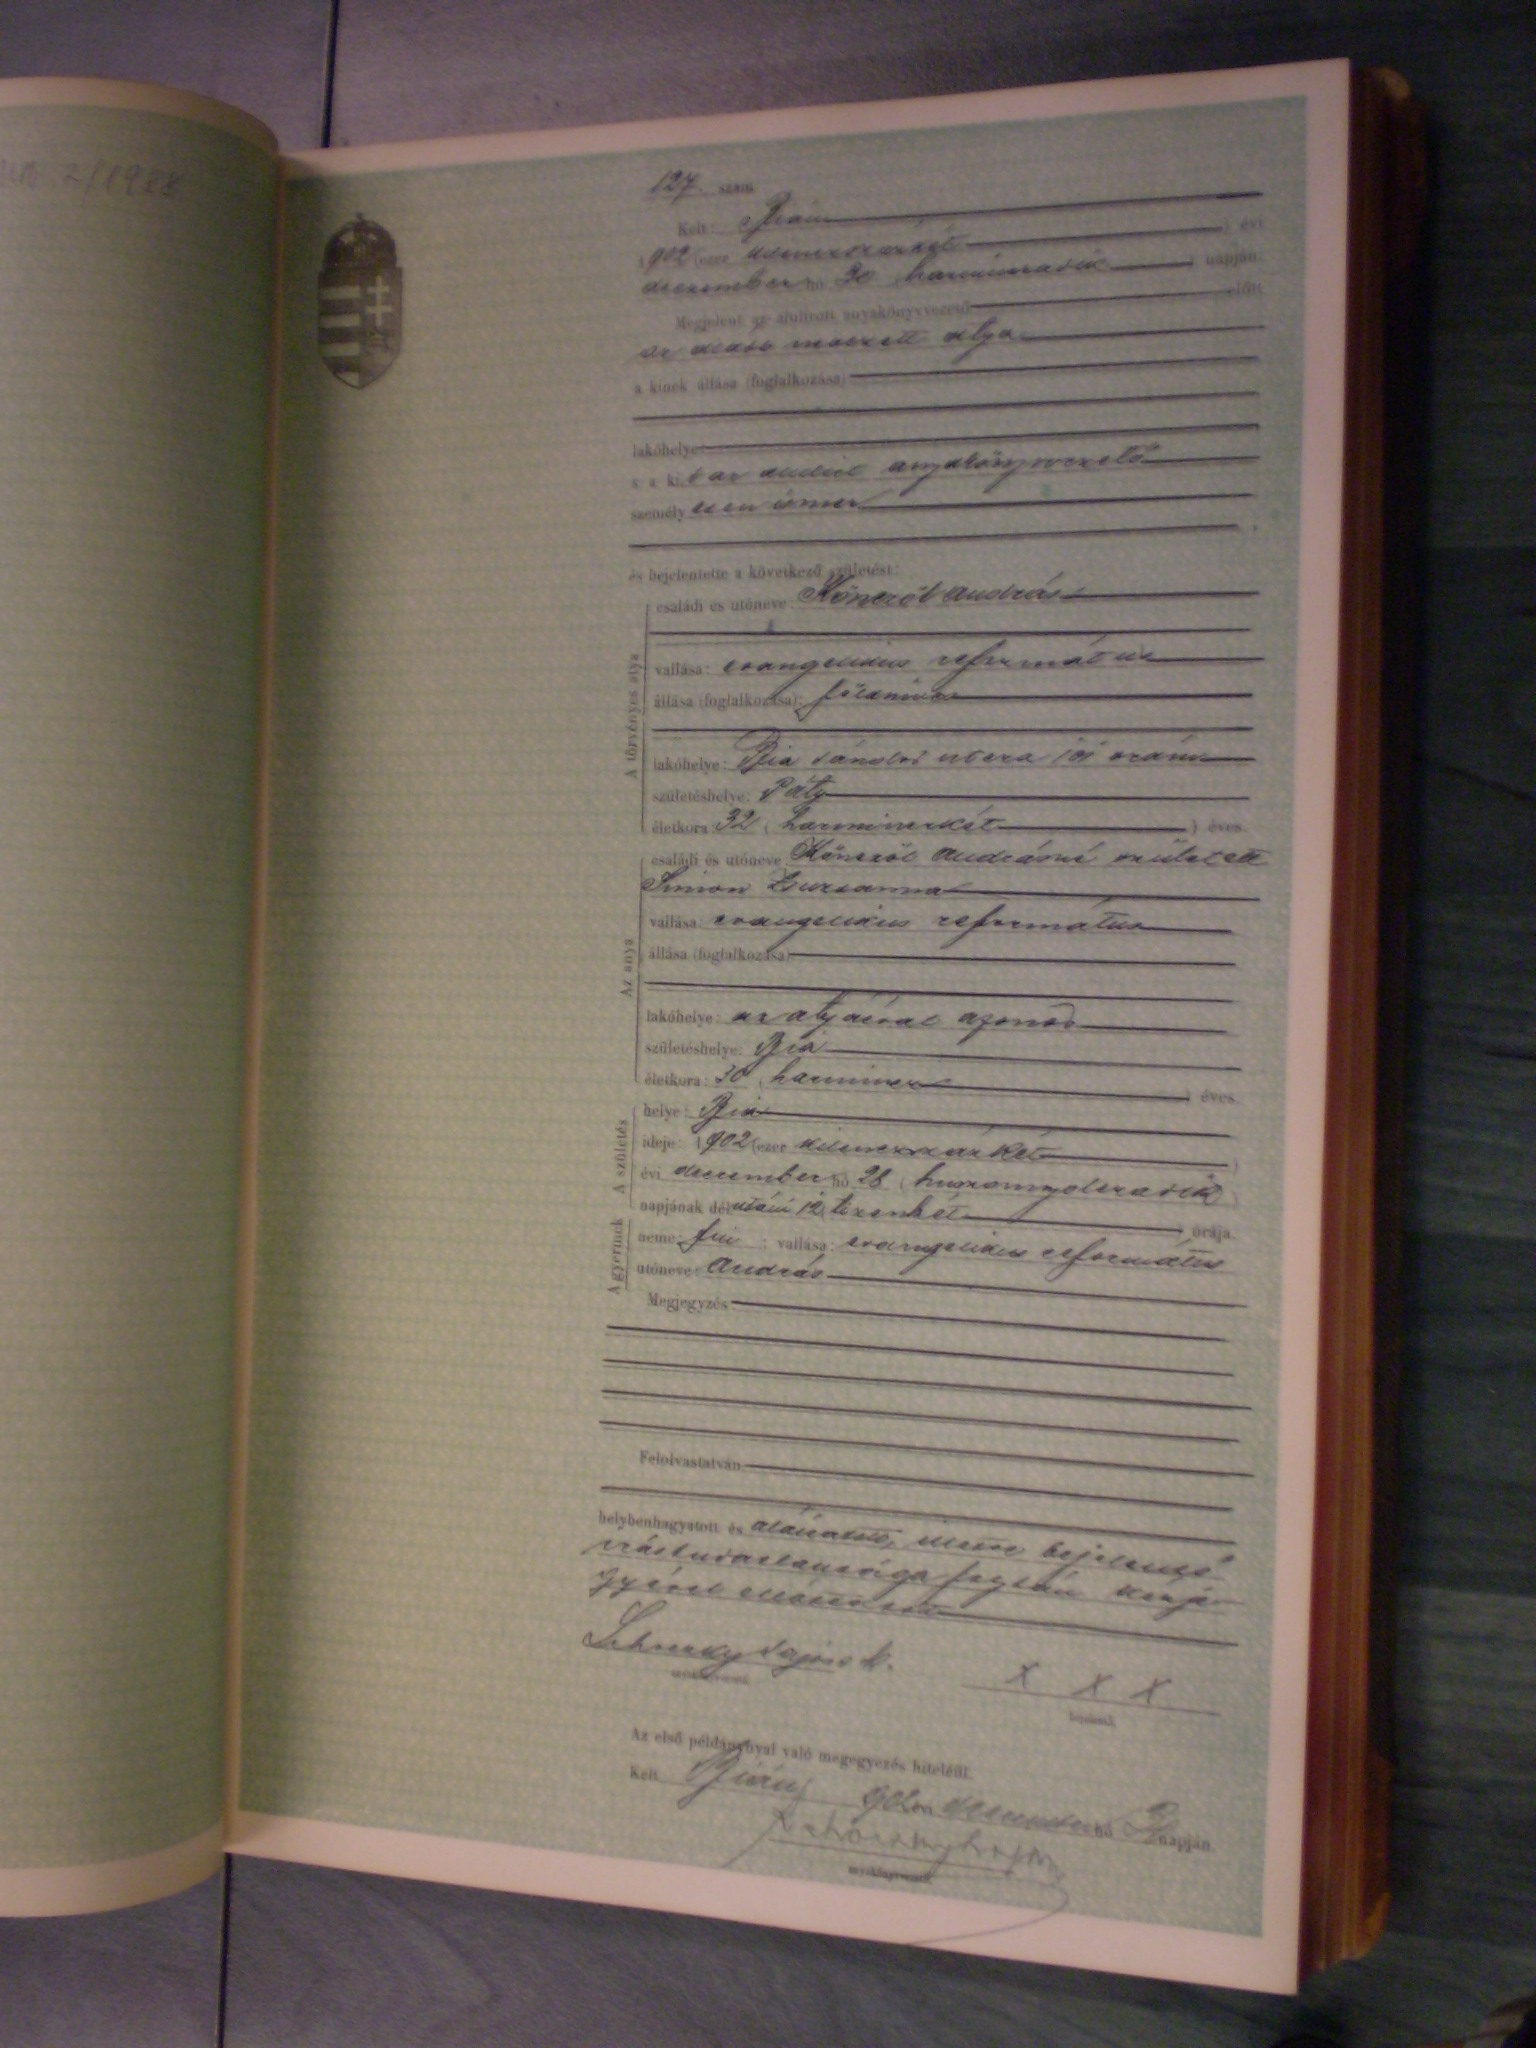 2/1988
127. szám
Kelt: Bián
1902 (ezer kilencszázkét) évi
december hó 30 (harmincadik) napján.
Megjelent az alulirott anyakönyvvezető előtt
az alább nevezett atya
a kinek állása (foglalkozása)
lakóhelye
s a kit az alulirt anyakönyvvezető
személyesen ismer
és bejelentette a következő születést:
A törvényes atya
családi és utóneve: Könczöl András
vallása: evangelikus református
állása (foglalkozása):
lakóhelye: Bia utcza 101 szám
születéshelye: Páty
életkora: 32 (harminczkét) éves.
Az anya
családi és utóneve: Könczöl Andrásné született
Simon Zsuzsanna
vallása: evangelikus református
állása (foglalkozása)
lakóhelye: az atyáéval azonos
születéshelye: Bia
életkora: 30 (harmincz) éves.
A születés
helye: Bia
ideje: 1902 (ezer kilenczszázkét)
évi december hó 28 (huszonnyolczadik)
napjának délutáni 12 (tizenkét) órája
A gyermek
neme: fiú; vallása: evangelikus református
utóneve: András
Megjegyzés
Felolvastatván
helybenhagyatott és aláiratott, illetve bejelentő
írástudatlansága folytán kézje-
gyével elláttatott
Lajos k.
anyakönyvvezető
X X X
bejelentő
Az első példánynyal való megegyezés hiteléül.
Kelt Bián, 902 december hó napján.
anyakönyvvezető